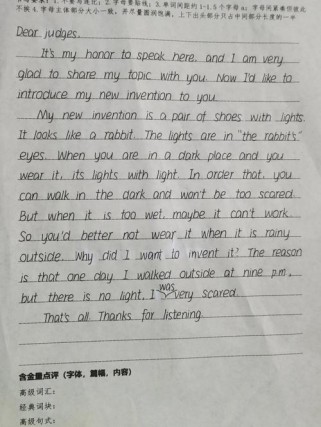 不挨 4.字母主体部分大小一致,并尽量圆润饱满,上下出头部分只占中间部分长度的一半
Dear judges,
It's my honor to speak here, and I am very
glad to share my topic with you. Now I'd like to
introduce my new invention to you.
My new invention is a pair of shoes with lights.
It looks like a rabbit. The lights are in "the rabbit's"
eyes. When you are in a dark place and you
wear it, its lights with light. In order that, you
can walk in the dark and won't be too scared.
But when it is too wet, maybe it can't work.
So you'd better not wear it when it is rainy
outside. Why did I want to invent it? The reason
is that one day I walked outside at nine p.m.,
but there is no light. I was very scared.
That's all. Thanks for listening.
含金重点评(字体、篇幅、内容)
高级词汇:
经典词块:
高级句式: